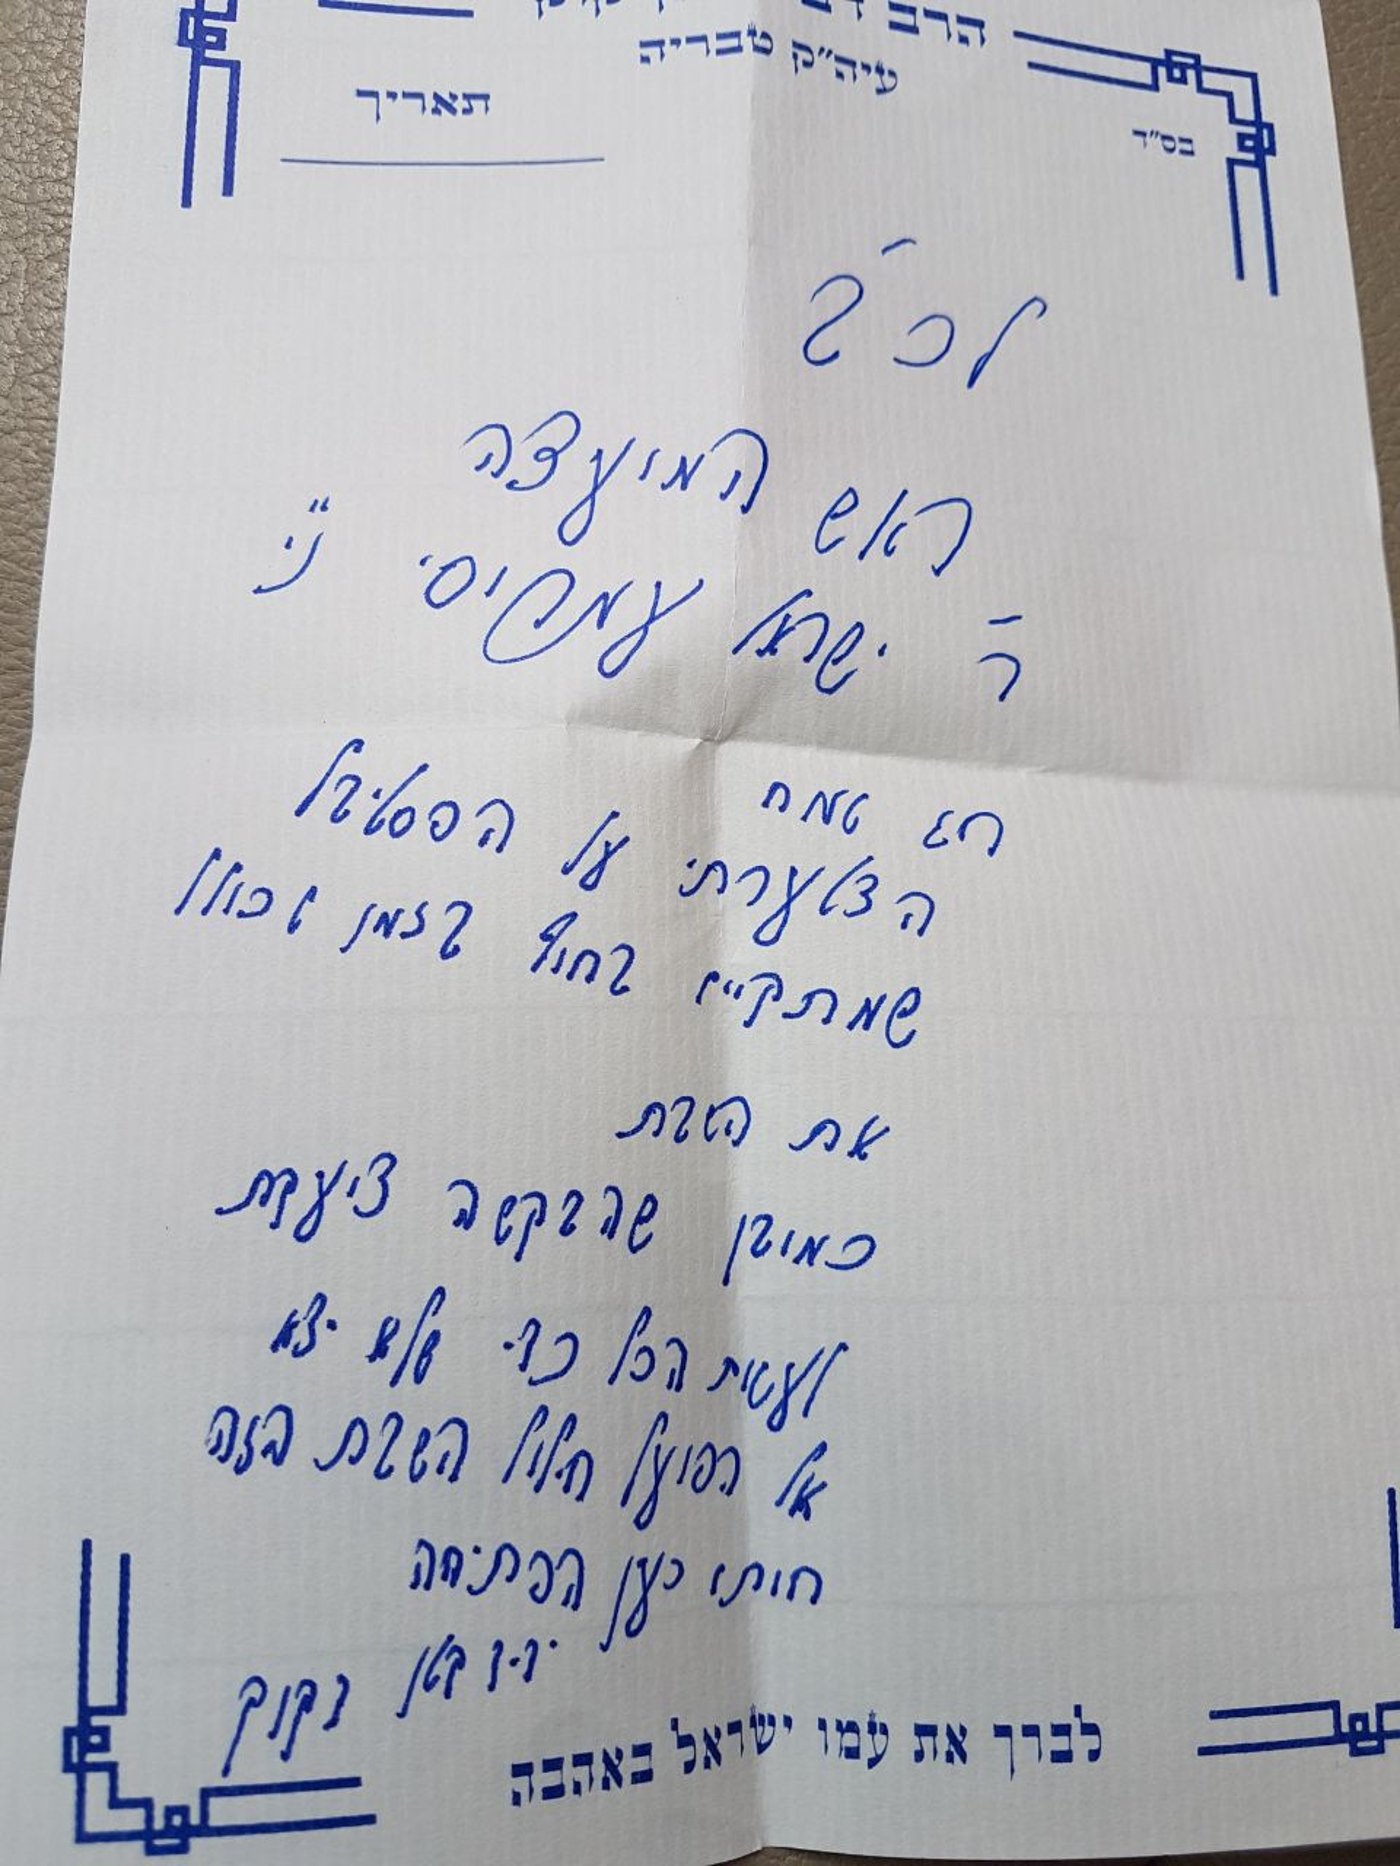 הרב
עיה"ק טבריה
תאריך
בס"ד
לכ'
ראש המועצה
ר' ישראל עמרוסי ני"
חג שמח
הצטערתי על הפסטיבל
שמתקיים בחוף בזמן שכולל
את השבת
כמובן שהבקשה ציעקת
לעשות הכל כדי שלא יצא
אל הפועל חילול השבת הזה
חותו כעין הפתיחה
דקוק
לברך את עמו ישראל באהבה